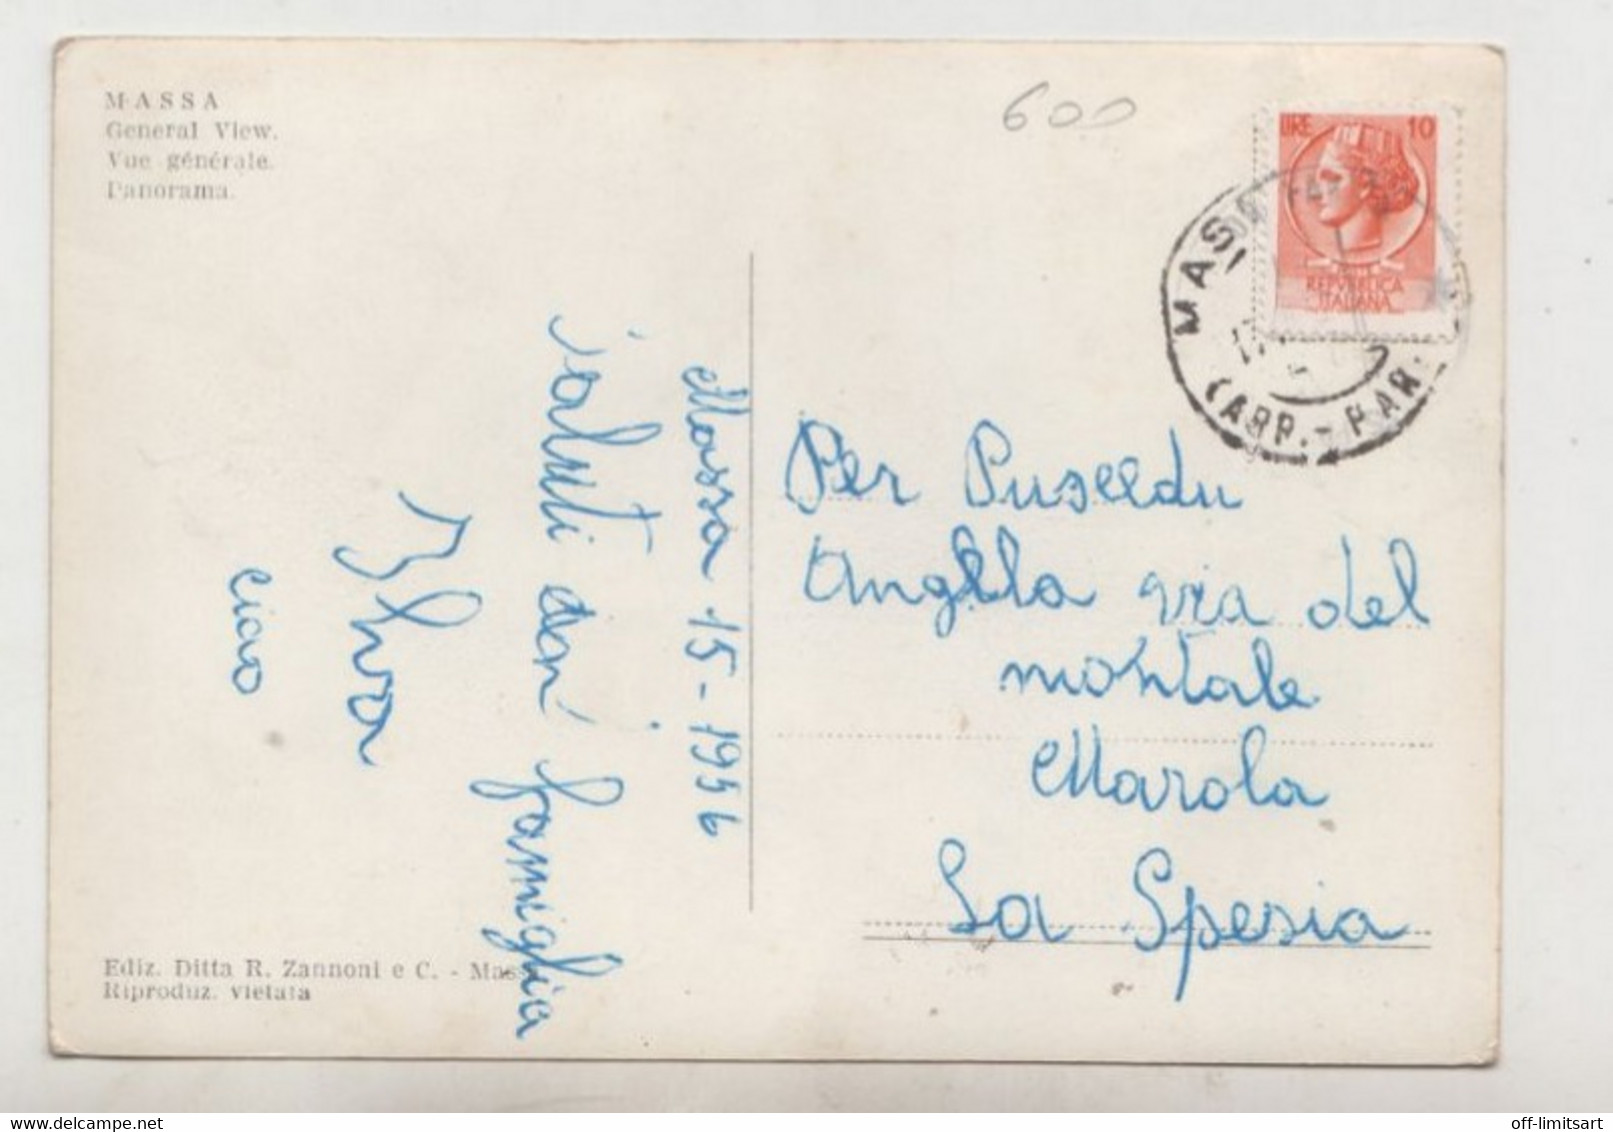 MASSA
General View.
Vue générale.
Panorama.
600
LIRE 10
REPVBBLICA
ITALIANA
MASSA
(ARR.-PAR.
17
Massa 15-1956
saluti
famiglia
ciao
Per Puseedu
Angela via del
montale
Marola
La Spesia
Ediz. Ditta R. Zannoni e C. - Massa
Riproduz. vietata
www.delcampe.net
off-limitsart